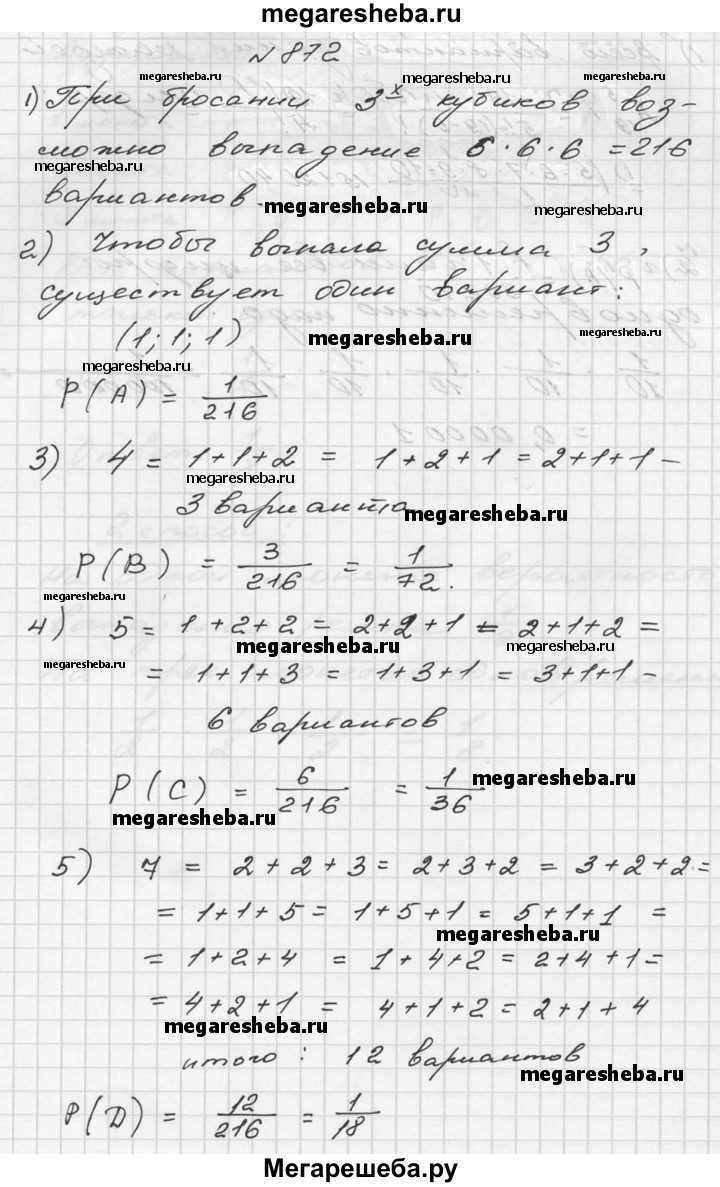 megaresheba.ru
№ 872
megaresheba.ru megaresheba.ru megaresheba.ru
1) При бросании 3х кубиков воз-
можно выпадение 6 · 6 · 6 = 216
megaresheba.ru
вариантов.
megaresheba.ru megaresheba.ru
2) Чтобы выпала сумма 3,
существует один вариант:
(1; 1; 1)
megaresheba.ru megaresheba.ru
megaresheba.ru
P(A) = 1/216
3) 4 = 1+1+2 = 1+2+1 = 2+1+1 –
megaresheba.ru
3 варианта
megaresheba.ru
P(B) = 3/216 = 1/72.
megaresheba.ru megaresheba.ru
4) 5 = 1+2+2 = 2+2+1 = 2+1+2 =
megaresheba.ru megaresheba.ru
megaresheba.ru
= 1+1+3 = 1+3+1 = 3+1+1 –
6 вариантов
P(C) = 6/216 = 1/36
megaresheba.ru
megaresheba.ru
5) 7 = 2+2+3 = 2+3+2 = 3+2+2 =
= 1+1+5 = 1+5+1 = 5+1+1 =
megaresheba.ru
= 1+2+4 = 1+4+2 = 2+4+1 =
= 4+2+1 = 4+1+2 = 2+1+4
megaresheba.ru
итого: 12 вариантов
megaresheba.ru
P(D) = 12/216 = 1/18
Мегарешеба.ру